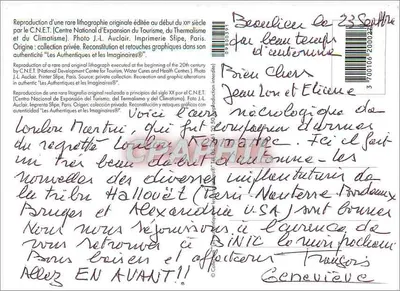 Reproduction d'une rare lithographie originale éditée au début du XXe siècle
par le C.N.E.T. (Centre National d'Expansion du Tourisme, du Thermalisme
et du Climatisme). Photo J.-L. Auclair. Imprimerie Slipe, Paris.
Origine : collection privée. Reconstitution et retouches graphiques dans son
authenticité "Les Authentiques et les Imaginaires®".
Reproduction of a rare and original lithograph executed at the beginning of the 20th century
by C.N.E.T. (National Development Center for Tourism, Water Cures and Health Centre). Photo
J.-L. Auclair. Imprimerie Slipe, Paris. Source: private collection. Reconstitution and graphic
alterations in its authenticity "Les Authentiques et les Imaginaires®".
Reproducción de una rara litografía original realizada a principios del siglo XX por el C.N.E.T.
(Centro Nacional de Expansión del Turismo, del Termalismo y del Climatismo). Foto J.-L.
Auclair. Imprenta Slipe, París. Origen: colección privada. Reconstitución y retoques gráficos
en su autenticidad "Les Authentiques et les Imaginaires®".
Beaulieu le 23 Septbre
par beau temps
d'automne
Bien Chers
Jean Lou et Etienne
Voici l'avis nécrologique de
Loulou Martini, qui fut compagnon d'armes
du regretté Loulou. Ici il fait
un très beau début d'automne - les
nouvelles des diverses implantations de
la tribu Hallouët (Paris Nanterre Bordeaux
Bruges et Alexandria U.S.A) sont bonnes
Nous nous réjouissons à l'avance de
vous retrouver à BINIC le mois prochain
Bons baisers et affections François
ALLEZ EN AVANT!! Geneviève
3 700106 2000